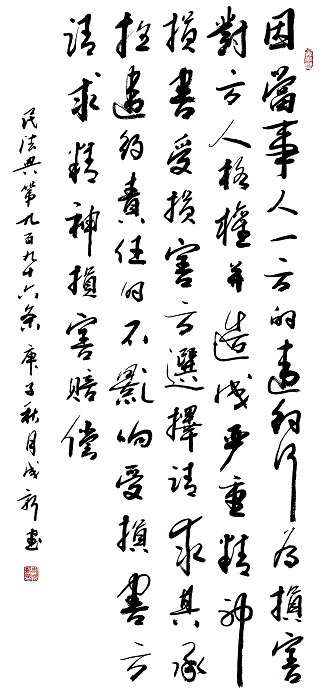 因當事人一方的違約行为損害
對方人格權并造成严重精神
損害受損害方選擇请求其承
担違約責任的不影响受損害方
请求精神損害賠偿
民法典第九百九十六条 庚子秋月成新